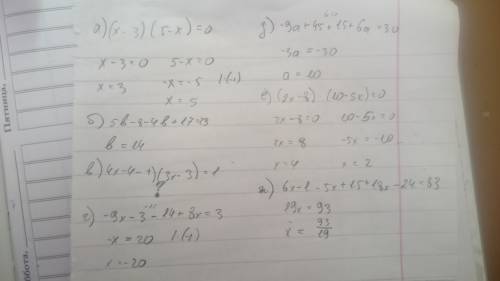 а) (x - 3) (5 - x) = 0
x - 3 = 0 5 - x = 0
x = 3 -x = -5 |·(-1)
x = 5
б) 5b - 8 - 4b + 17 = 23
b = 14
в) 4x - 4 - 1)(3x - 3) = 1
г) -9x - 3 - 14 + 8x = 3
-x = 20 |·(-1)
x = -20
д) -9a + 45 + 15 + 6a = 30
-3a = -30
a = 10
е) (2x - 8) (10 - 5x) = 0
2x - 8 = 0 10 - 5x = 0
2x = 8 -5x = -10
x = 4 x = 2
ж) 6x - 2 - 5x + 15 + 18x - 24 = 83
19x = 93
x = 93/19
Пятница,
бота,